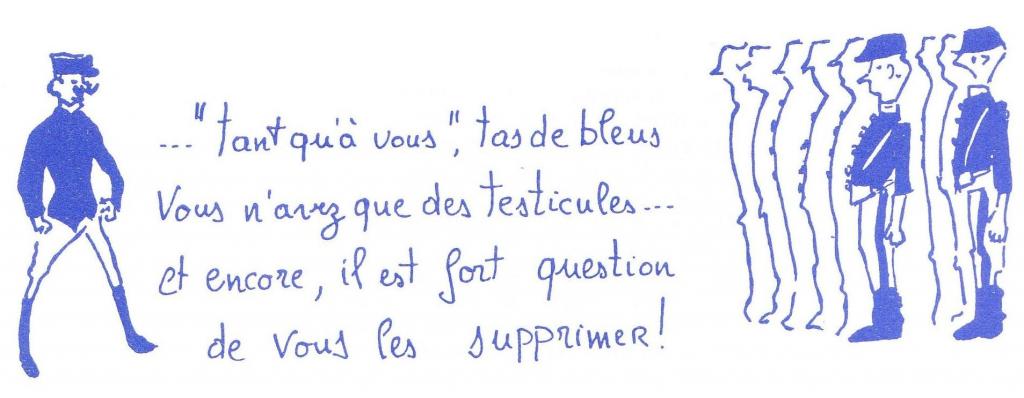 ..."tant qu'à vous", tas de bleus
Vous n'avez que des testicules...
et encore, il est fort question
de vous les supprimer!